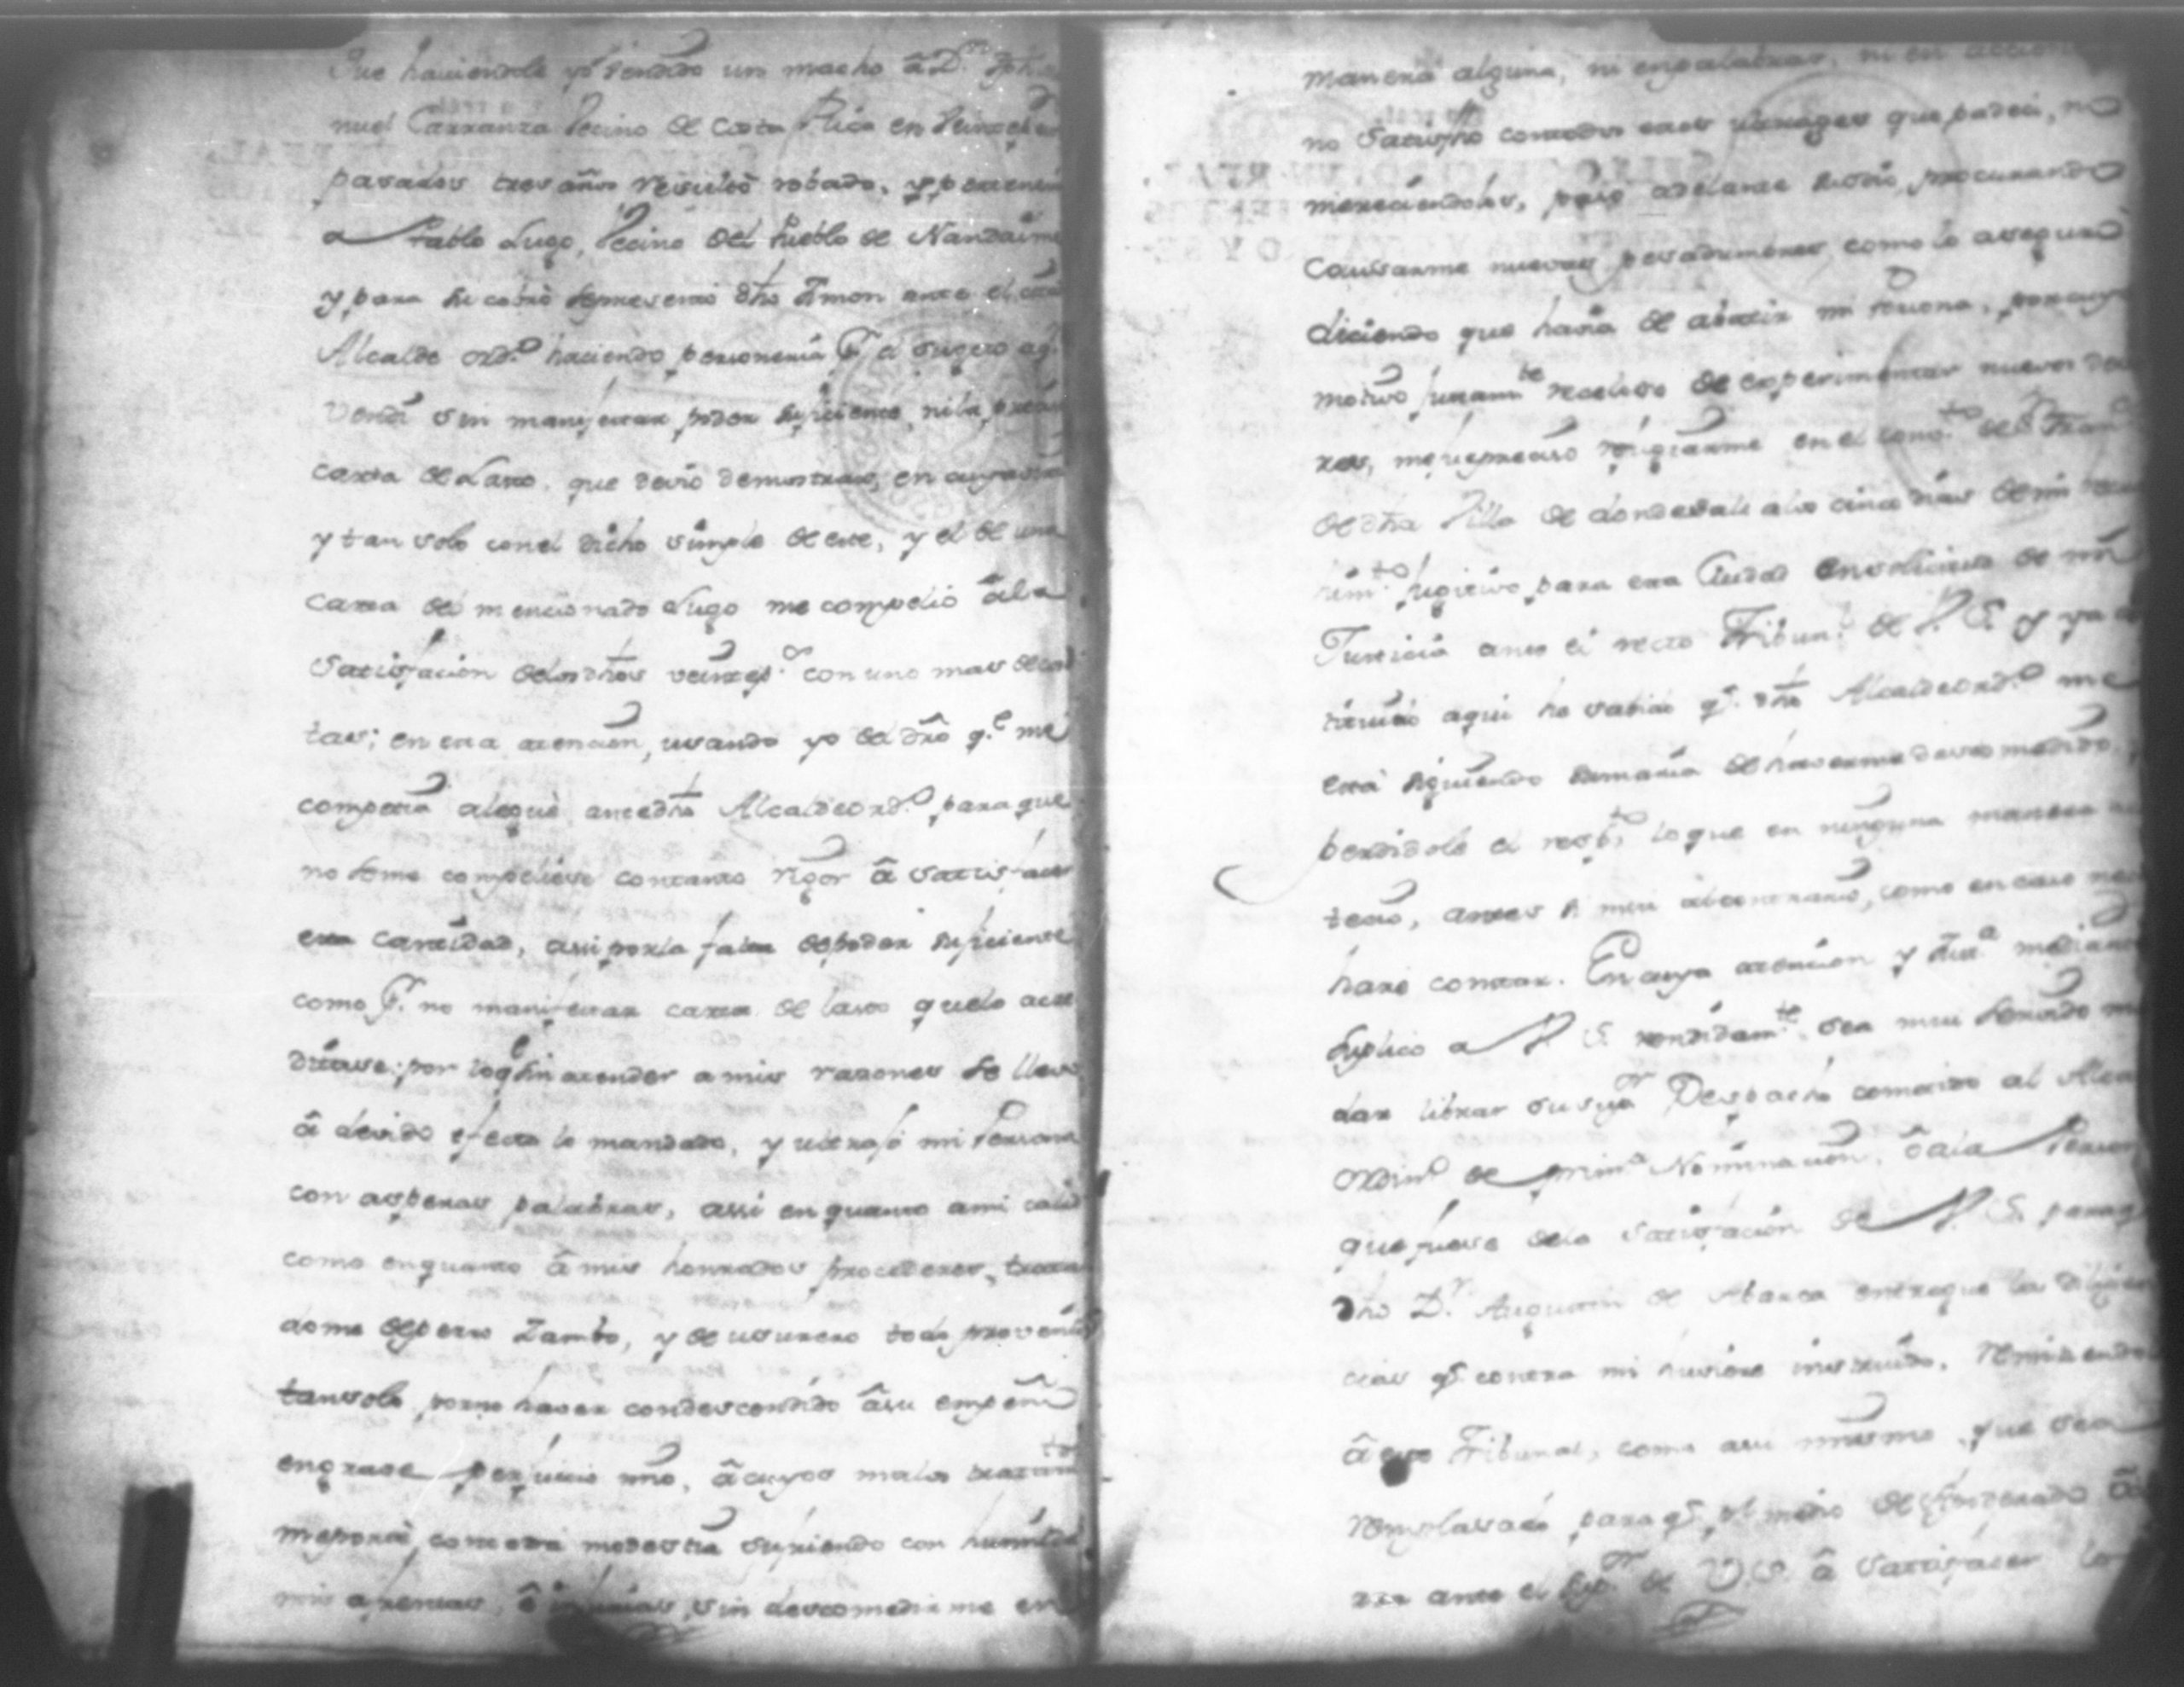 Que haviendole yo vendido un macho â D.n
nuel Carranza Vecino de Costa Rica en veinte
pasados tres años resultò robado, y pertenecia
a Pablo Lugo, Vecino del Pueblo de Nandaime
y para su cobrò sepresentó dho Simon ante el
Alcalde ord.o haciendo personeria p.r el sugeto
Verdâ sin manifestar poder suficiente, ni la
carta de Lazo, que deviò demostrar, en cuya
y tan solo con el dicho simple de este, y el de una
carta del mencionado Lugo me compelió âla
Satisfacion delos dhos veinte p.s con uno mas de cos
tas; en esta atencion, usando yo del dro q.e me
competia aleguè ante dho Alcalde ord.o para que
no seme compeliese con tanto rigor â satisfacer
esta cantidad, assi por la falta de poder suficiente
como p.r no manifestar carta de lazo que lo acre
ditase; por loq.e sin atender a mis razones se llevò
â devido efecto lo mandado, y ultrajó mi Persona
con asperas palabras, assi en quanto a mi calid
como en quanto â mis honrados procederes, tratan
dome de perro Zambo, y de usurero todo proveni
tan solo por no haver condescendido âsu empeño
en grave perjuicio mio, â cuyos malos tratam.tos
me portè con toda modestia sufriendo con humild
mis afrentas, ê injurias, sin descomedirme en
manera alguna, ni en palabras, ni en accion
no satisfho con todos esos ultrages que padeci, no
mereciendolos, pasò adelante su odio, procurando
causarme nuevas pesadumbres como lo asegurò
diciendo que havia de abatir mi Persona, por cuyo
motivo justam.te receloso de experimentar nuevos
res, me fue preciso refugiarme en el Conv.to de S.n Fran.co
de dha Villa de donde sali alos cinco dias de mi
fugitivo para esta Ciudad en solicitud de mi
Justicia ante el recto Tribun.l de V. S. y ya
tituido aqui he sabido q.e dho Alcalde ord.o me
està siguiendo sumaria de haverme desco medido,
perdidole el resp.to lo que en ninguna manera
tecio, antes si mui al contrario, como en caso nec
hare constar. En cuya atencion y Just.a mediante
Suplico a V. S. rendidam.te sea mui servido man
dar librar su sup.or Despacho cometido al Alcal
ordin.o de prim.a Nominacion, ò ala Person
que fuese dela satisfacion de V. S. paraq
dho D.n Augustin de Abarca entregue las diligen
cias q.e contra mi huviere instruido, remitiendo
â este Tribunal, como assi mismo que sea
emplasado paraq.e p.r medio de Apoderado
ante el sup.or de V.S. â satisfacer los